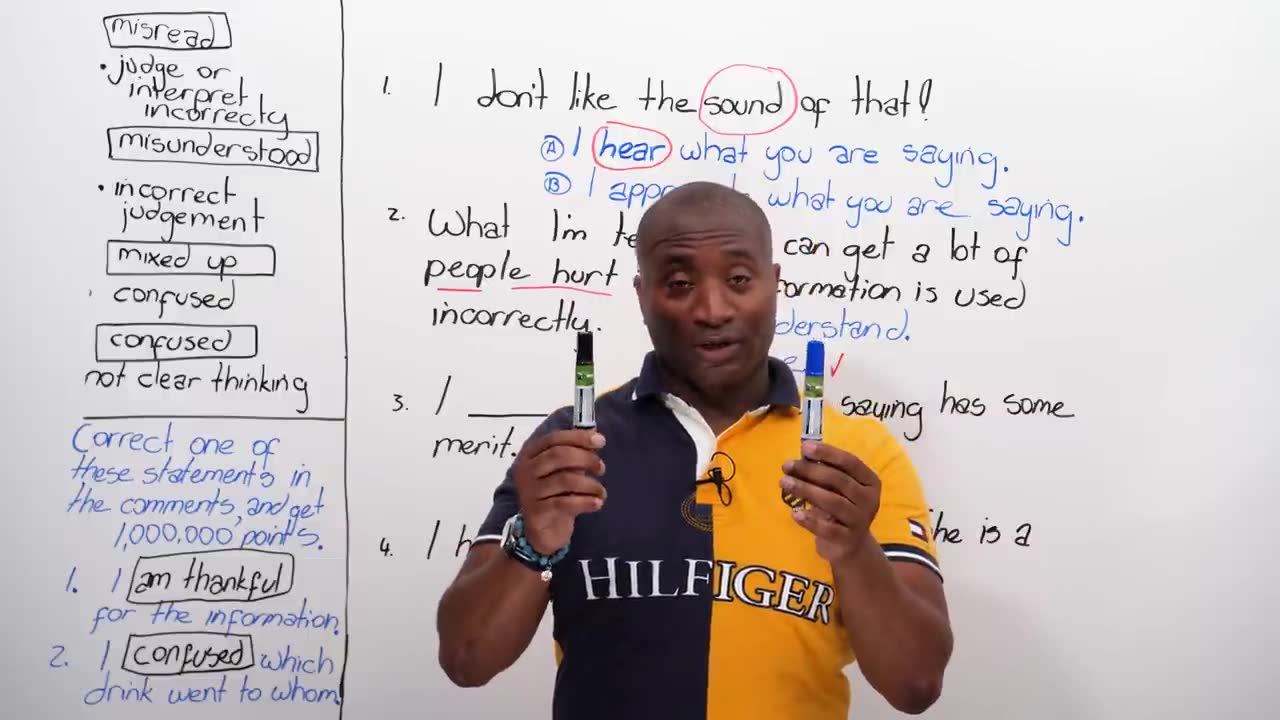 misread
• judge or
interpret
incorrecty
misunderstood
• incorrect
judgement
mixed up
confused
confused
not clear thinking
Correct one of
these statements in
the comments, and get
1,000,000 points.
1. I am thankful
for the information.
2. I confused which
drink went to whom.
1. I don't like the sound of that!
Ⓐ I hear what you are saying.
Ⓑ I what you are saying.
2. What I'm can get a lot of
people hurt is used
incorrectly.
3. I ______ saying has some
merit.
4. I is a
HILFIGER